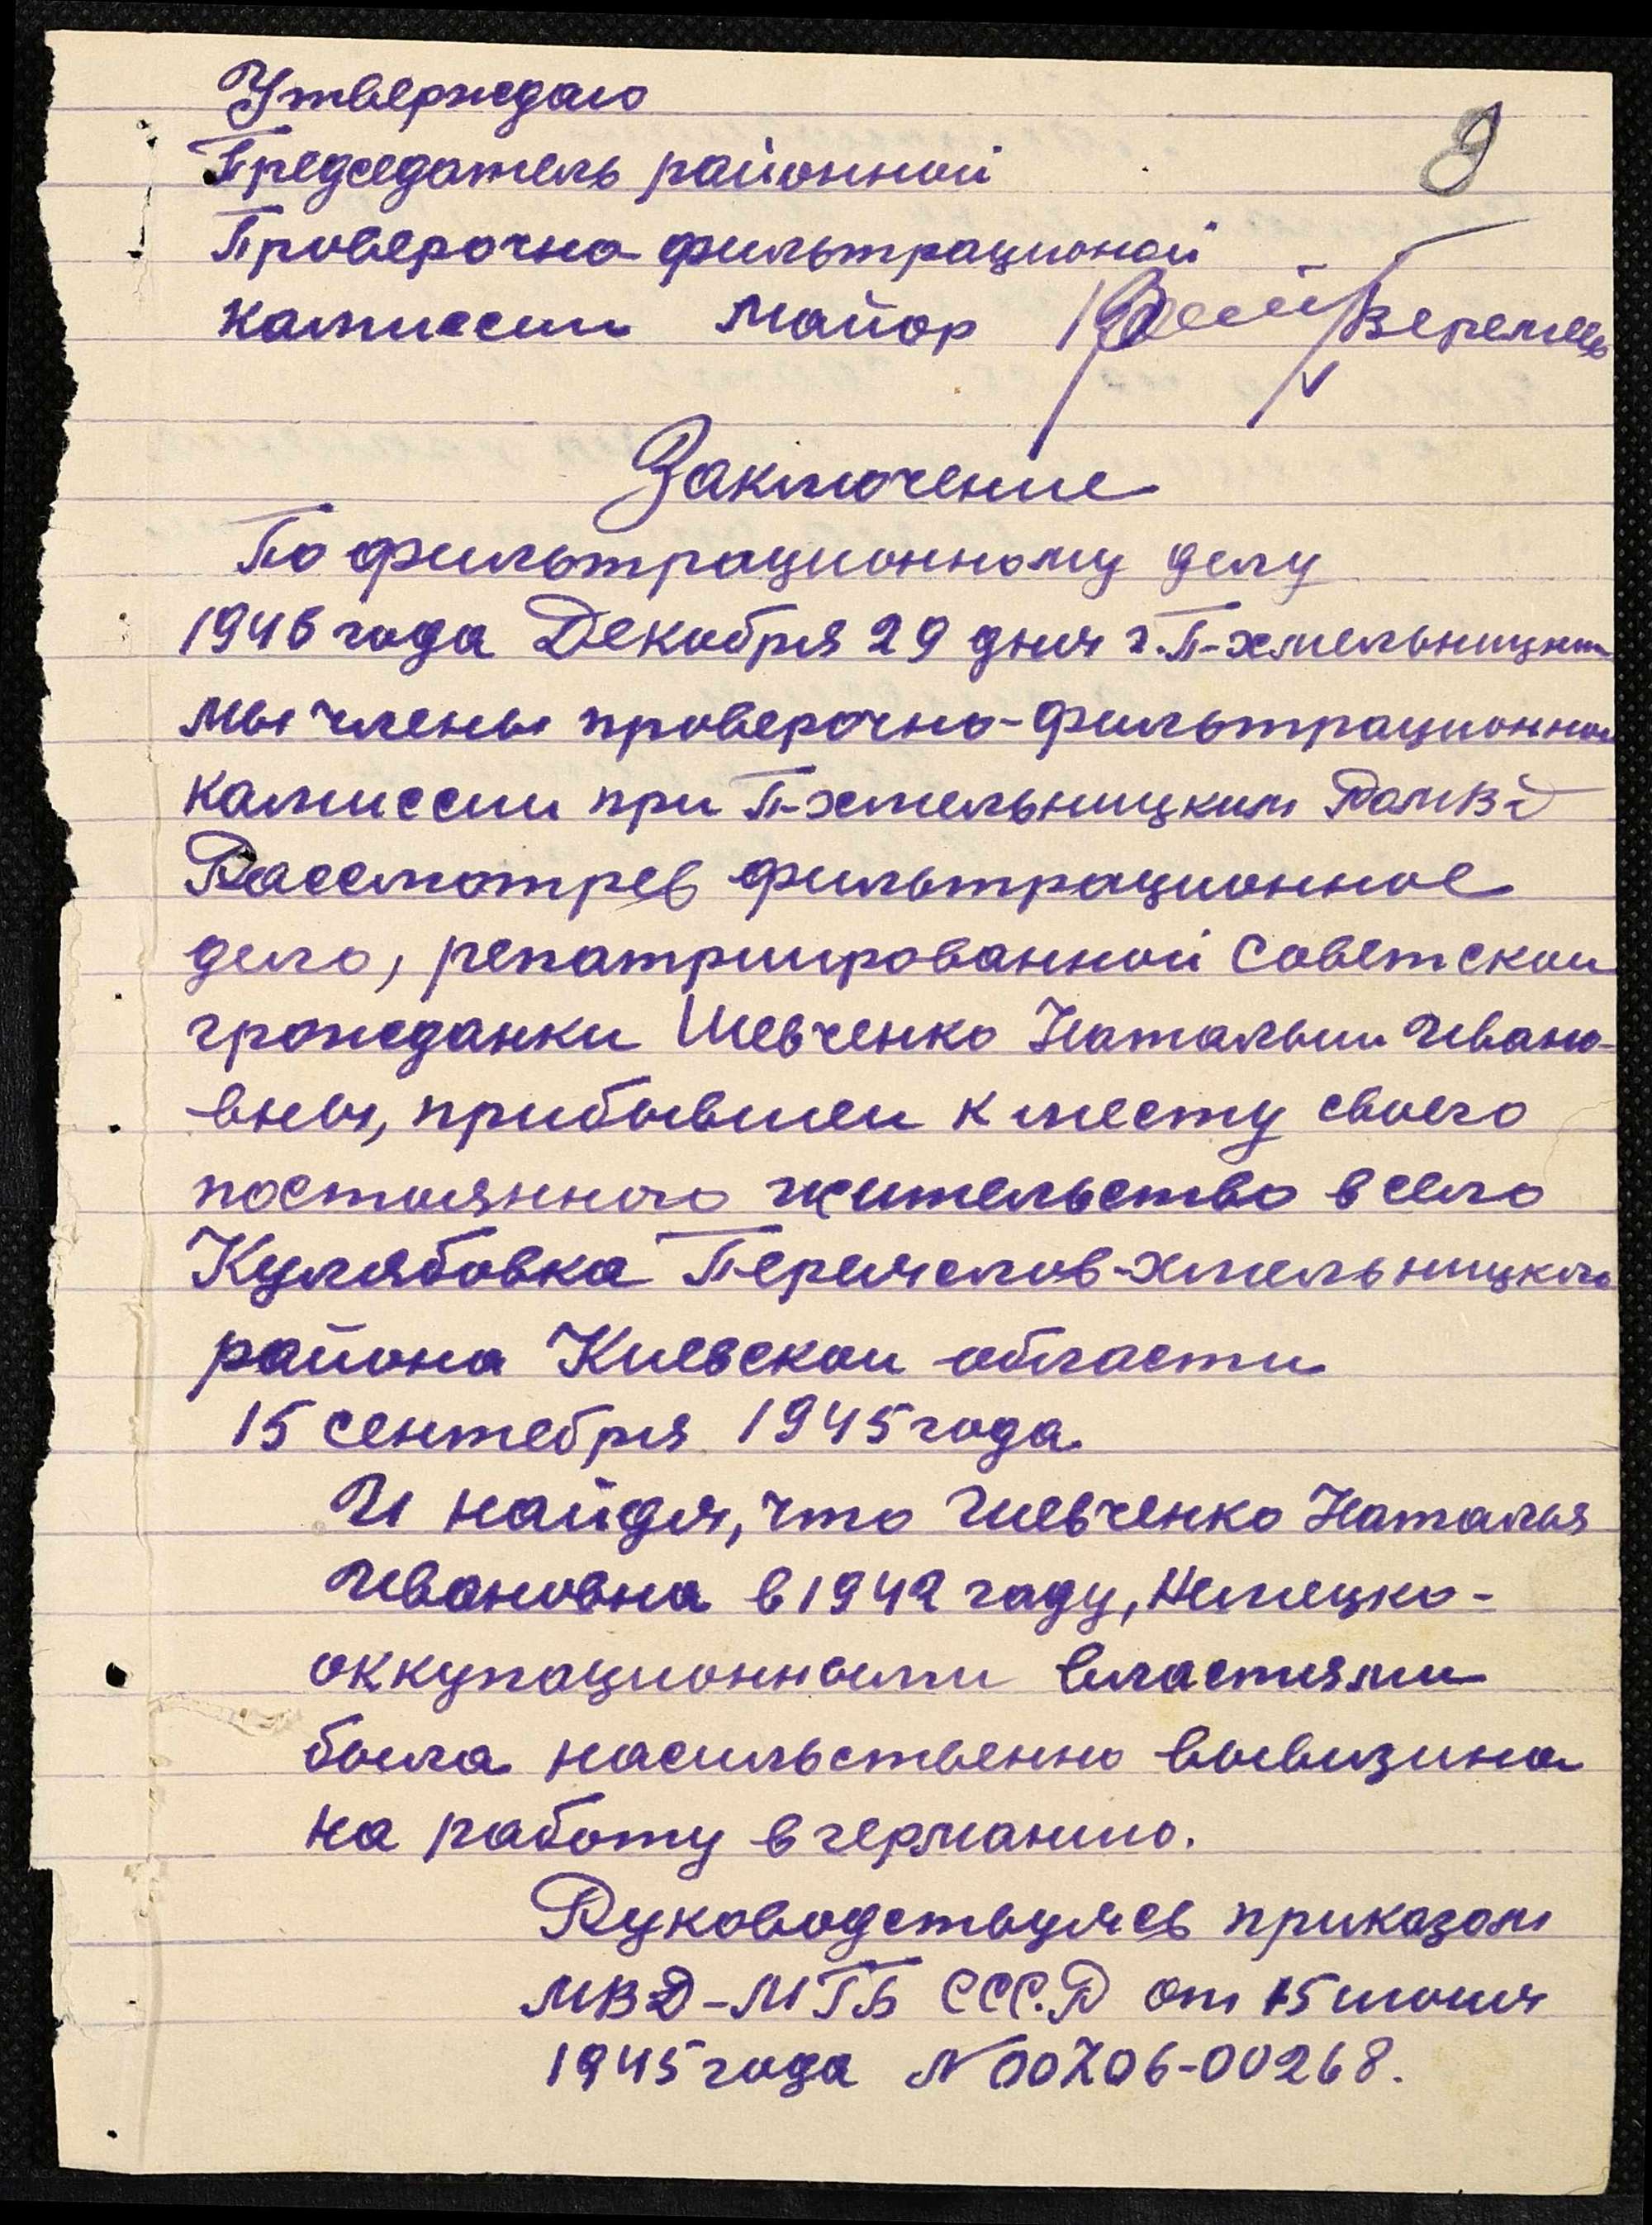 Утверждаю
9
Председатель районной
Проверочно-фильтрационой
камиссии майор Веремеев
Заключение
По фильтрационному делу
1946 года Декабря 29 дня г. П-хмельницкий
мы члены проверочно-фильтрационной
камиссии при П-хмельницким РОМВД
Рассмотрев фильтрационное
дело, репатриированной советской
гражданки Шевченко Натальи Ивано-
вны, прибывшей к месту своего
постоянного жительство в село
Кулябовка Переяслов-хмельницкого
района Киевской области
15 сентября 1945 года.
И найдя, что Шевченко Наталья
Ивановна в 1942 году, Немецко-
оккупационными властями
была насильственно вывизина
на работу в германию.
Руководствуясь приказом
МВД-МГБ СССР от 15 июня
1945 года N 00706-00268.